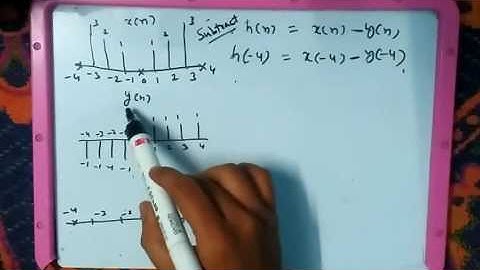 x(n)
3 2 1 1 2 3
-4 -3 -2 -1 0 1 2 3 4
Subtract
h(n) = x(n) - y(n)
h(-4) = x(-4) - y(-4)
y(n)
1 1 1
-4 -3 -2 2 3 4
-1 -1 -1 -1
-4 -3 -2